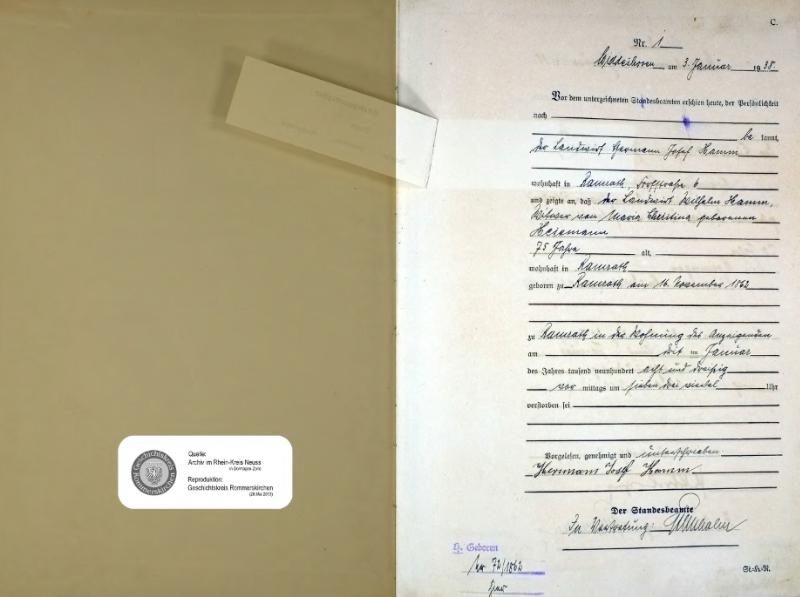 C.
Nr. 1
am 3. Januar 1938.
Vor dem unterzeichneten Standesbeamten erschien heute, der Persönlichkeit
nach
be kannt,
der Landwirt Hermann Josef Hamm
wohnhaft in Ramrath, 6
und zeigte an, daß der Landwirt Wilhelm Hamm,
Witwer von Maria Christina geborenen
Heismann
75 Jahre alt,
wohnhaft in Ramrath
geboren zu Ramrath am 16. November 1862
zu Ramrath in der Wohnung des Anzeigenden
am drit en Januar
des Jahres tausend neunhundert acht und dreißig
vor mittags um sieben drei viertel Uhr
verstorben sei
Vorgelesen, genehmigt und unterschrieben
Hermann Josef Hamm
Der Standesbeamte
In Vertretung:
Geboren
72/1862
St.A.R.
Geschichtskreis Rommerskirchen
Quelle:
Archiv im Rhein-Kreis Neuss
in Dormagen-Zons
Reproduktion:
Geschichtskreis Rommerskirchen